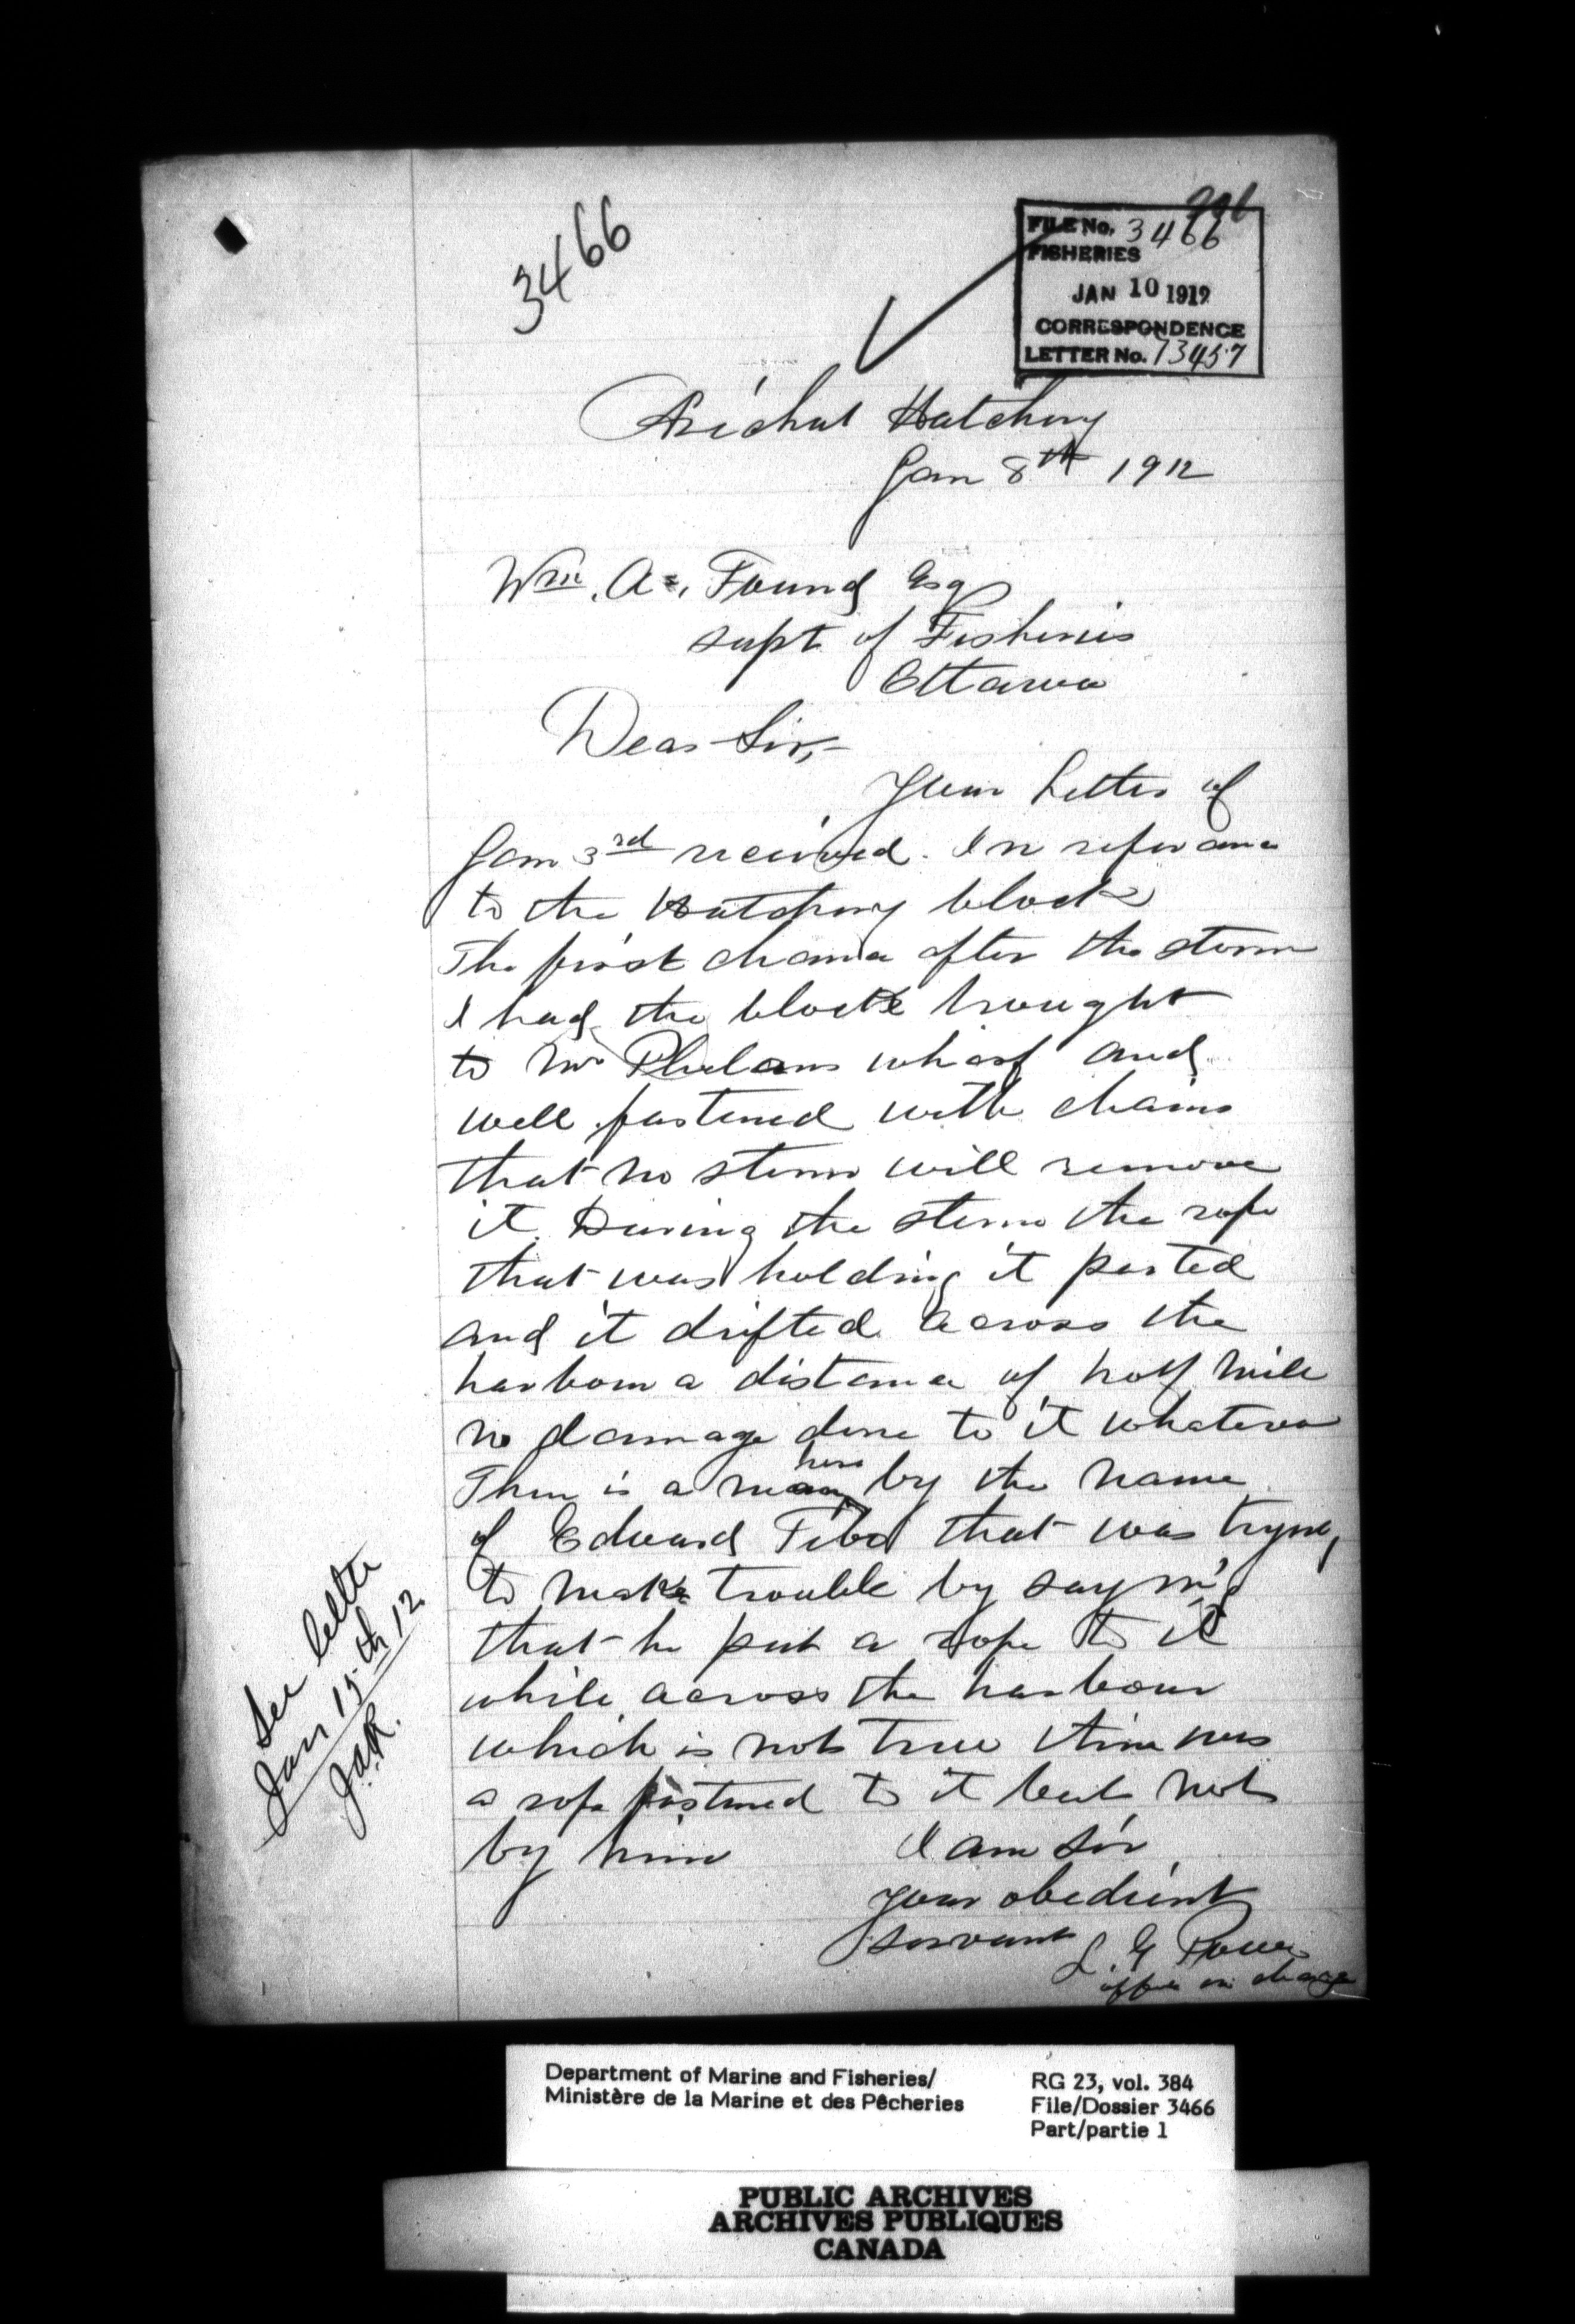 3466
FILE No. 3466
FISHERIES
JAN 10 1912
CORRESPONDENCE
LETTER No. 73457
Arichat Hatchery
Jan 8th 1912
Wm. A. Found Esq
supt of Fisheries
Ottawa
Dear Sir,-
Your Letter of
Jan 3rd received. In referance
to the Hatchery block
The first chance after the storm
I had the block brought
to Mr Phelans wharf and
well fastened with chains
that no storm will remove
it. During the storm the rope
that was holding it parted
and it drifted across the
harbour a distance of half mile
no damage done to it whatever
There is a man here by the name
of Edward that was trying
to make trouble by saying
that he put a rope to it
while across the harbour
which is not true there was
a rope fastened to it but not
by him I am Sir
your obedient
servant L G Power
officer in charge
See letter
Jan 15th 12
J.A.R.
Department of Marine and Fisheries/
Ministère de la Marine et des Pêcheries
RG 23, vol. 384
File/Dossier 3466
Part/partie 1
PUBLIC ARCHIVES
ARCHIVES PUBLIQUES
CANADA